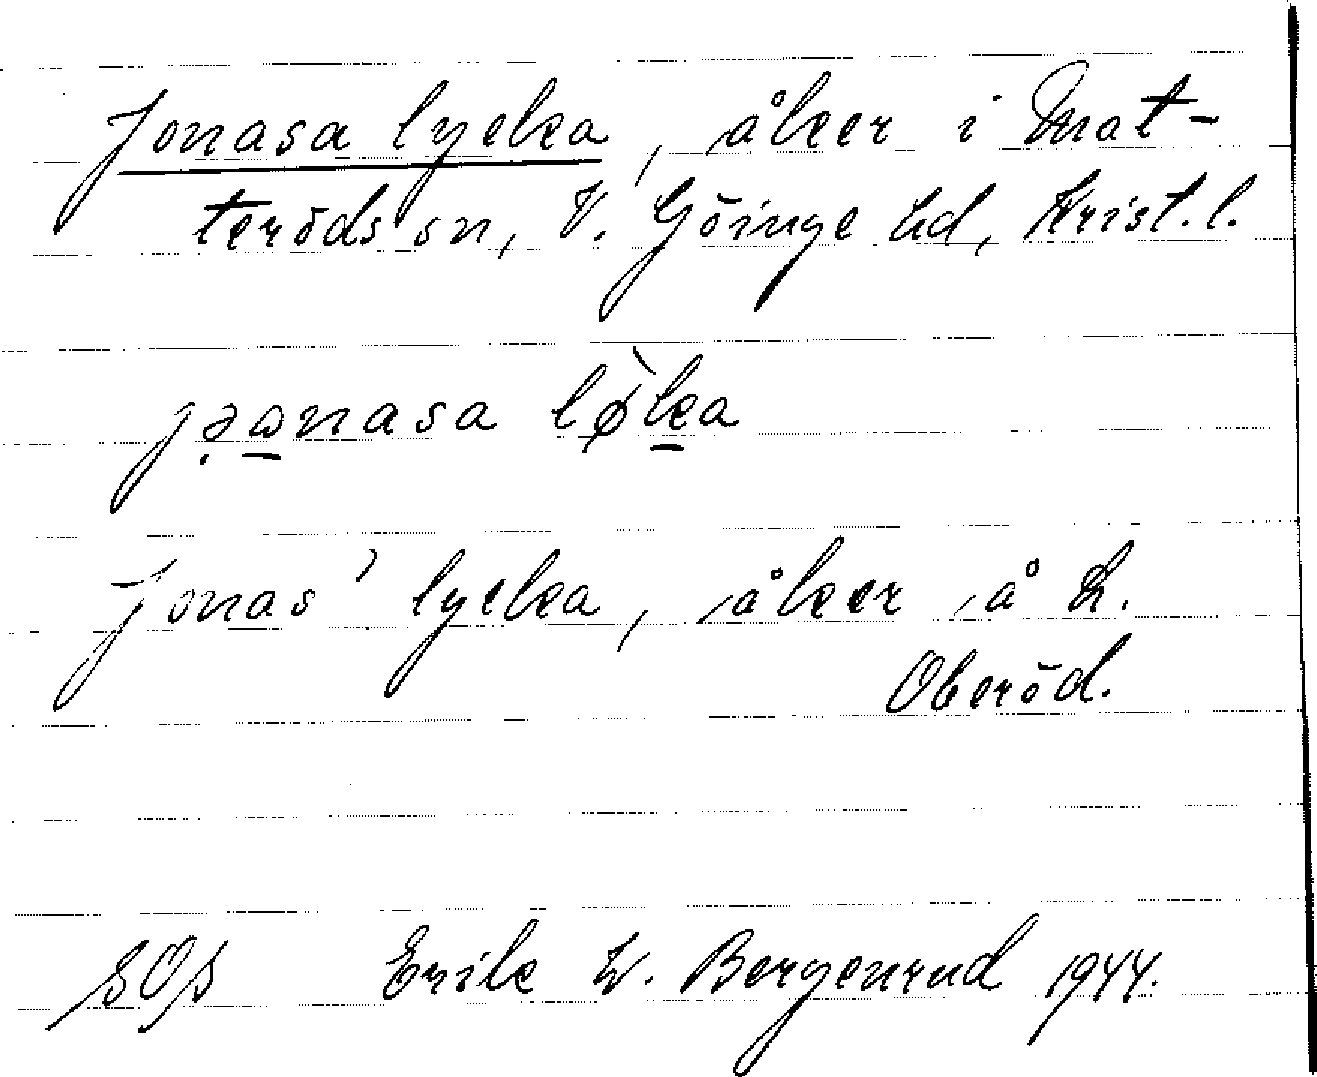 Jonasa lycka, åker i Mat-
teröds sn, V. Göinge hd, Krist. l.
jəωnasa lø̀ka
Jonas' lycka, åker å L.
Oberöd.
SOA Erik W. Bergenrud 1944.